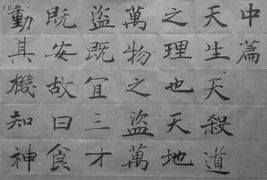 中篇
天生天殺道
之理也天地
萬物之盜萬
盜既宜三才
既安故曰食
動其機知神